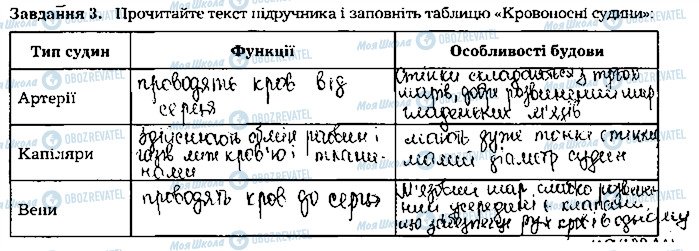 Завдання 3. Прочитайте текст підручника і заповніть таблицю «Кровоносні судини»:
Тип судин Функції Особливості будови
Артерії
проводять кров від
серця
Стінки складаються з трьох
шарів, добре розвинений шар
гладеньких м'язів
Капіляри
Здійснюють обмін речовин і
газів між кров'ю і ткани-
нами
мають дуже тонкі стінки
малий діаметр судин
Вени
проводять кров до серця
М'язовий шар слабко розвине-
ний усередині є клапани,
що рух крові в одному